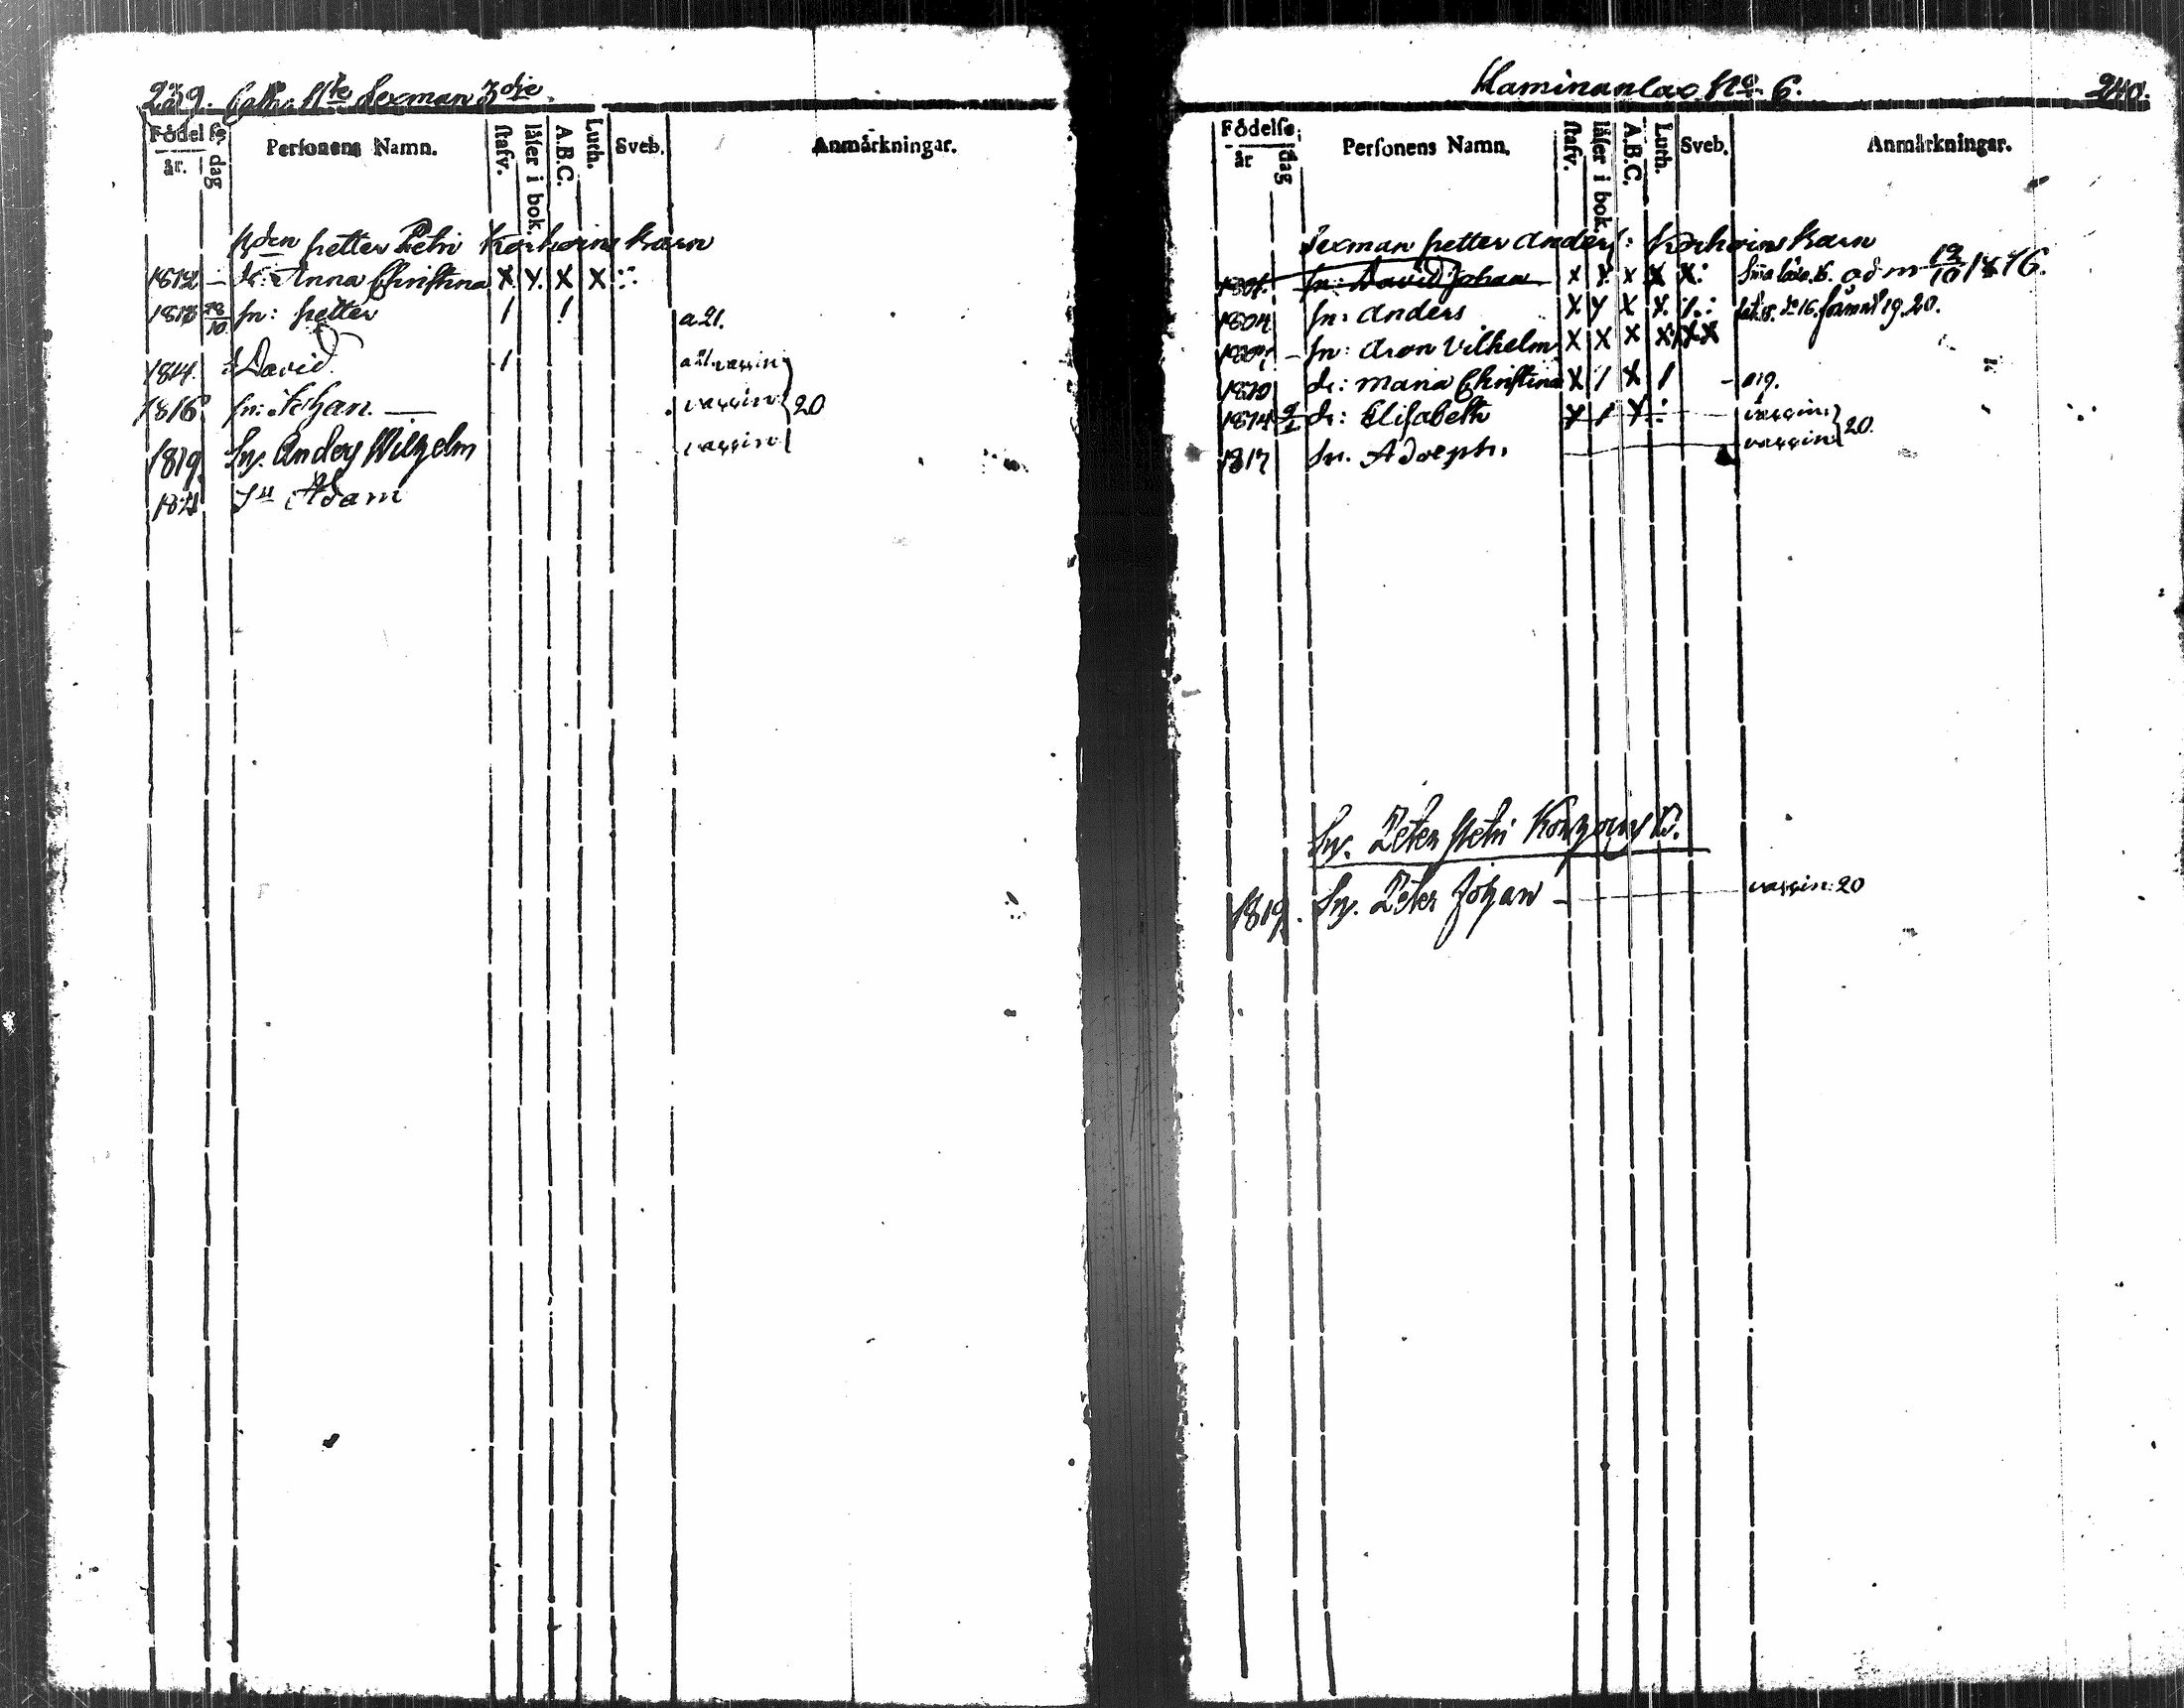 239.
Sexman 3dje
Födelse
år. dag
Personens Namn.
stafv.
läser i bok.
A.B.C.
Luth.
Sveb.
Anmärkningar.
petter Petri Korhoins barn
1812 – dr: Anna Christina X Y. X X
1813 28/10 sn: petter / / a 21.
1814. David / vaccin
1816 sn: Johan. — vaccin 20
1819 Sn. Anders Wilhelm vaccin
1821 Sn Adam
Haminanlax No 6. 240.
Födelse
år dag
Personens Namn.
stafv.
läser i bok
A.B.C.
Luth.
Sveb.
Anmärkningar.
Sexman petter Anders: Korhoins barn
1801. sn: David Johan x x x x x: adm 12/10 1816.
1804 sn: Anders X Y X X 19. 20.
– sn: Aron Vilhelm X X X X X X
1810 dr: Maria Christina X / X / – a 19.
1814 dr: Elisabeth X / X vaccin
1817 sn. Adolph. vaccin 20.
Sn. Peter Petri Korhoins b.
1819. Sn. Peter Johan – vaccin: 20